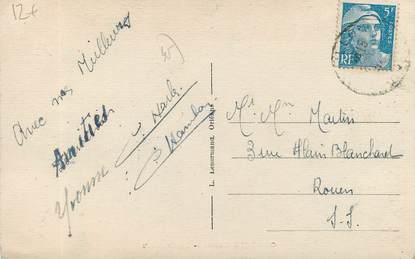 12€
Avec nos Meilleures
Amitiés
Yvonne
L. Lenormand, Orléans
5F
POSTES
RF
Mr Mme Martin
3 rue Alain Blanchard
Rouen
S. I.